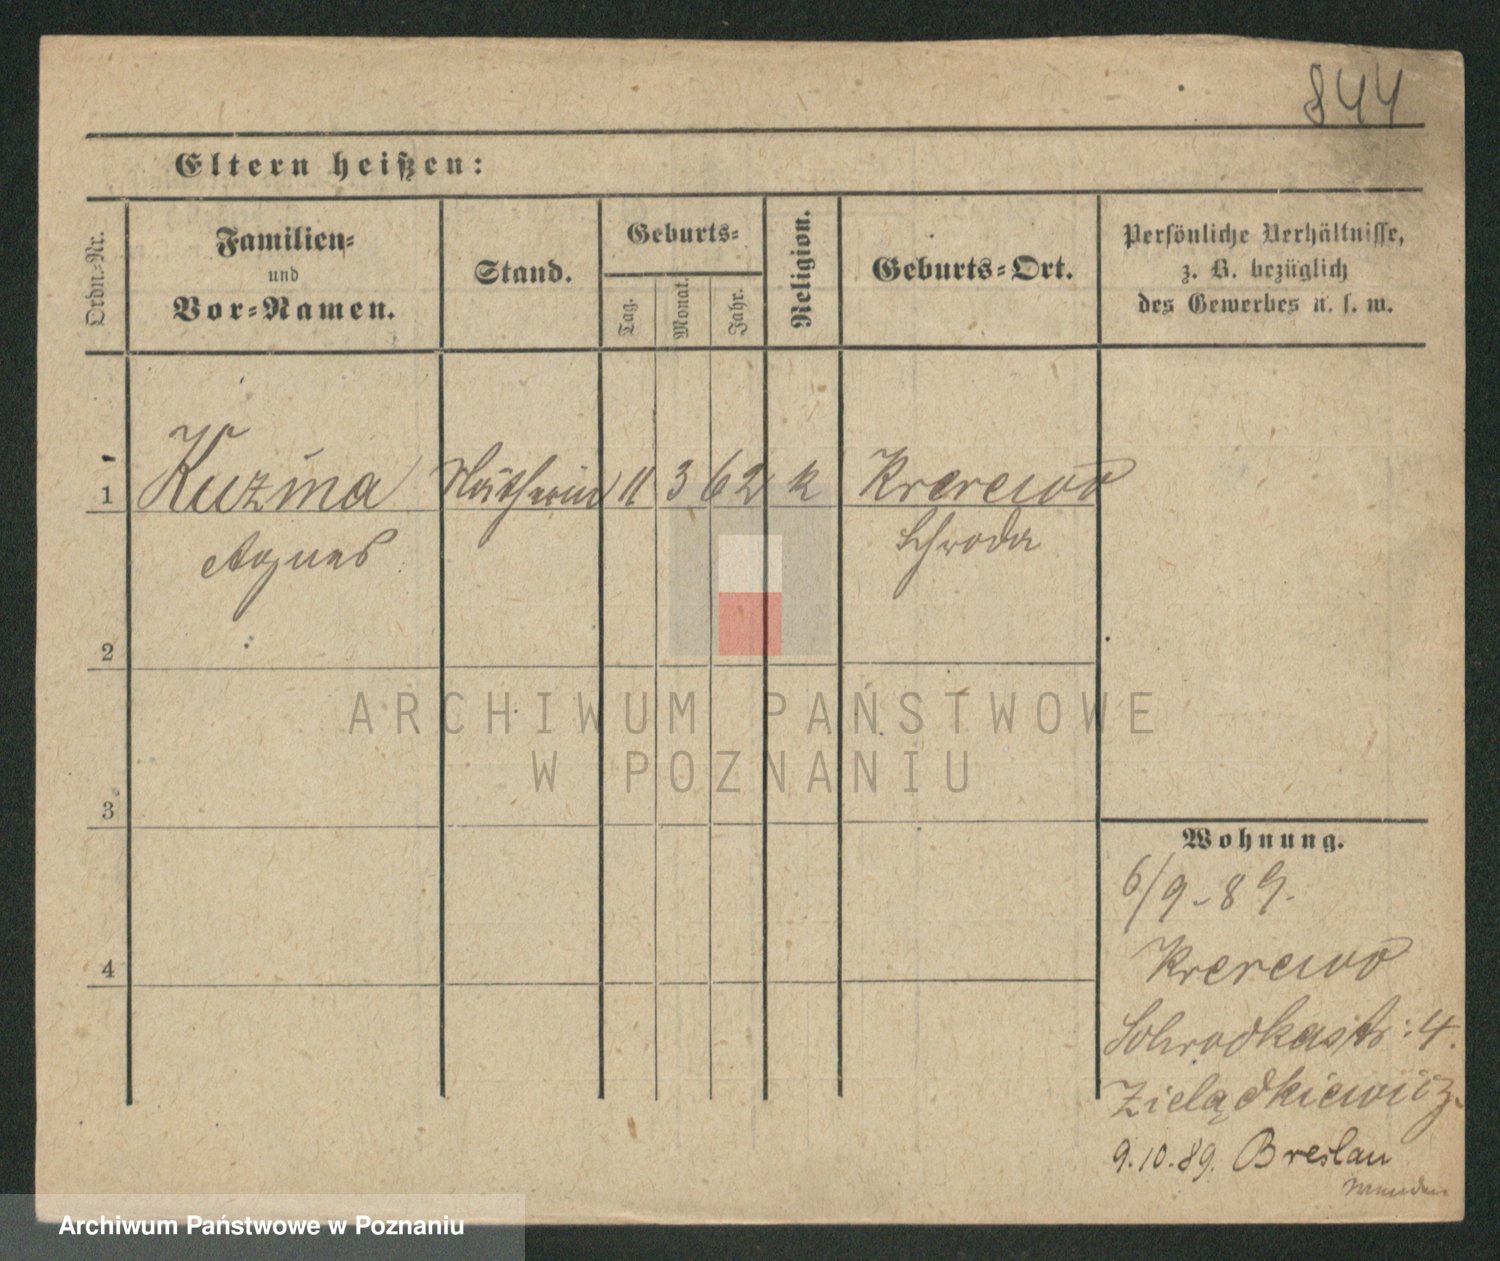 844
Eltern heißen:
Ordn=Nr.
Familien=
und
Vor=Namen.
Stand.
Geburts=
Tag.
Monat.
Jahr.
Religion.
Geburts=Ort.
Persönliche Verhältnisse,
z. B. bezüglich
des Gewerbes u. s. w.
1 Kuzma Näherin 11 3 62 k Krerewo
Agnes Schroda
2
3
4
Wohnung.
6/9-89.
Krerewo
Schrodkastr: 4.
Zielądkiewicz.
9.10.89. Breslau
ARCHIWUM PAŃSTWOWE
W POZNANIU
Archiwum Państwowe w Poznaniu